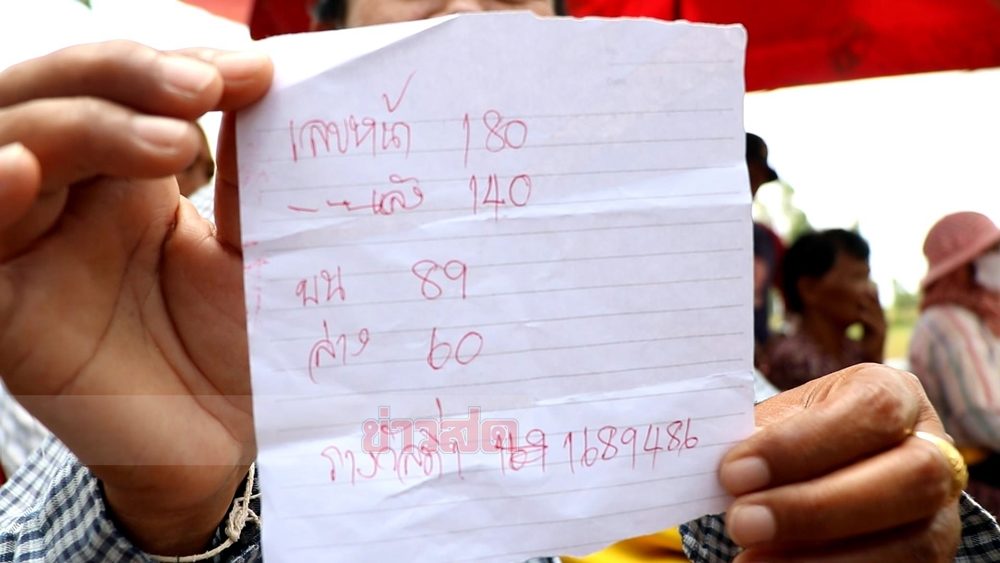 เลขหน้า 180
– – – หลัง 140
บน 89
ล่าง 60
ข่าวสด
รางวัลที่ 1 1689486